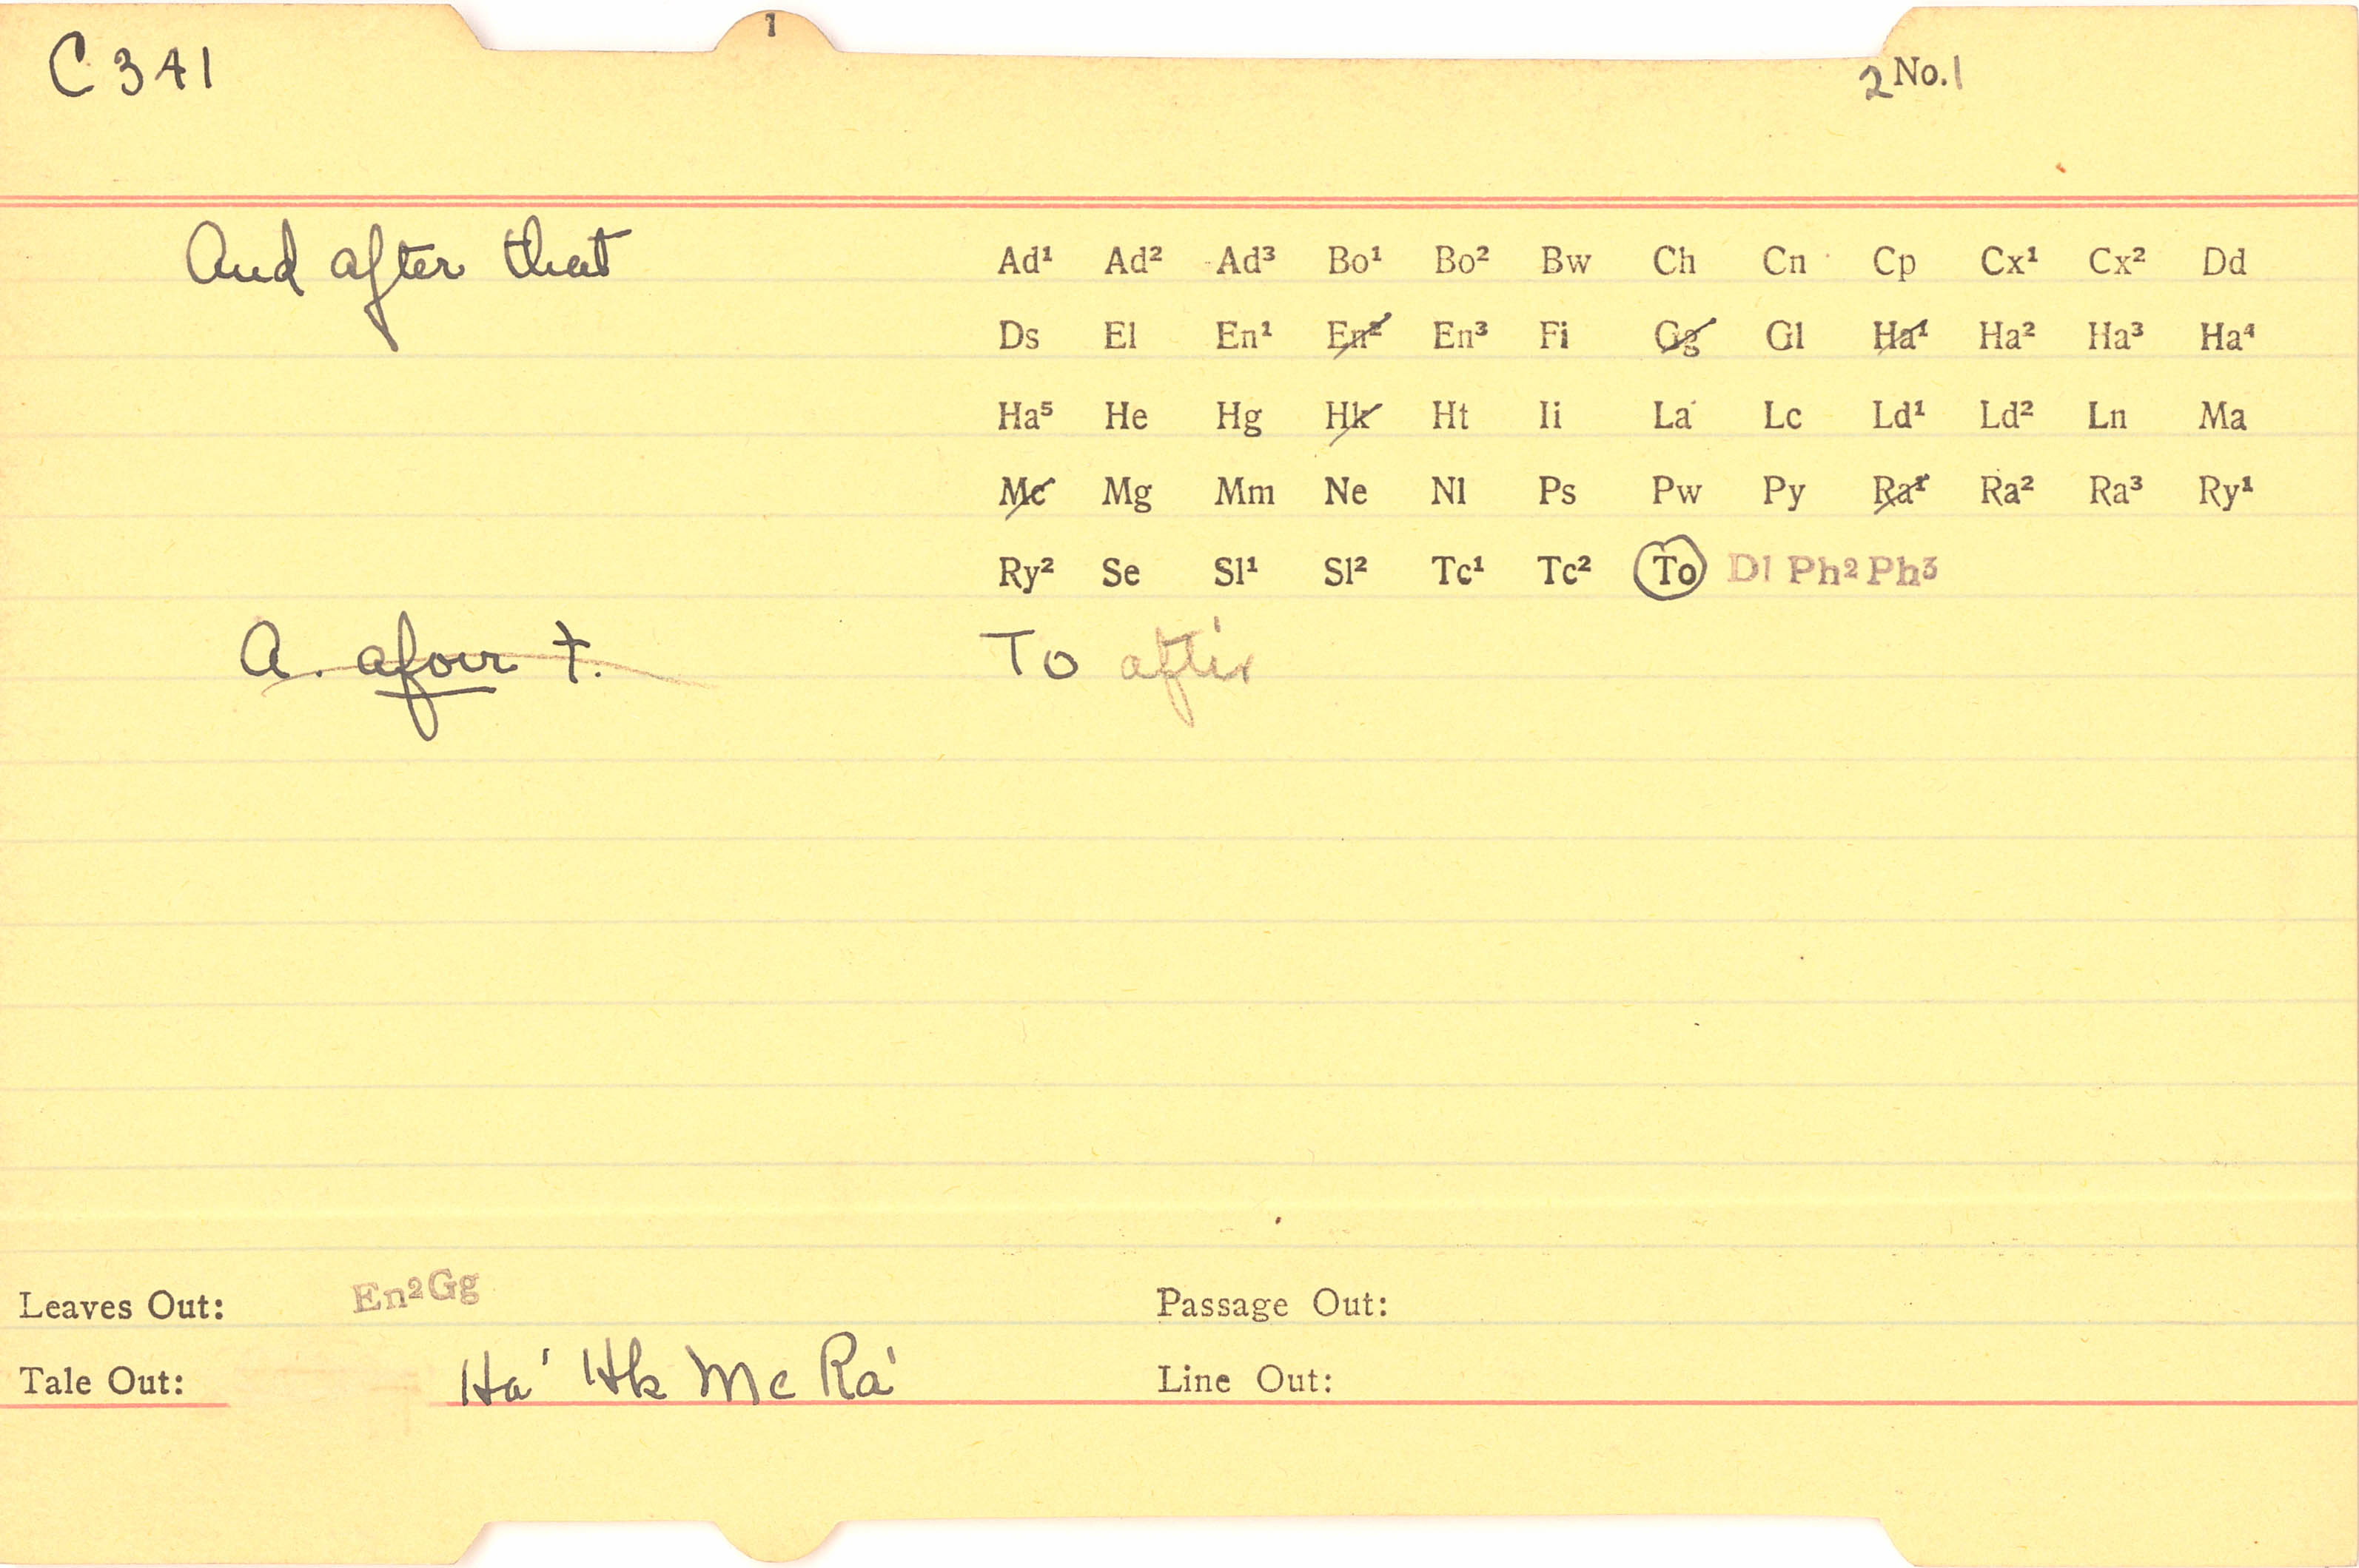 1
C 341
2 No. 1
And after that
Ad¹ Ad² Ad³ Bo¹ Bo² Bw Ch Cn Cp Cx¹ Cx² Dd
Ds El En¹ En² En³ Fi Gg Gl Ha¹ Ha² Ha³ Ha⁴
Ha⁵ He Hg Hk Ht Ii La Lc Ld¹ Ld² Ln Ma
Mc Mg Mm Ne Nl Ps Pw Py Ra¹ Ra² Ra³ Ry¹
Ry² Se Sl¹ Sl² Tc¹ Tc² To Dl Ph² Ph³
A. afoir t. To aftir
Leaves Out: En² Gg Passage Out:
Tale Out: Ha¹ Hk Mc Ra¹ Line Out: